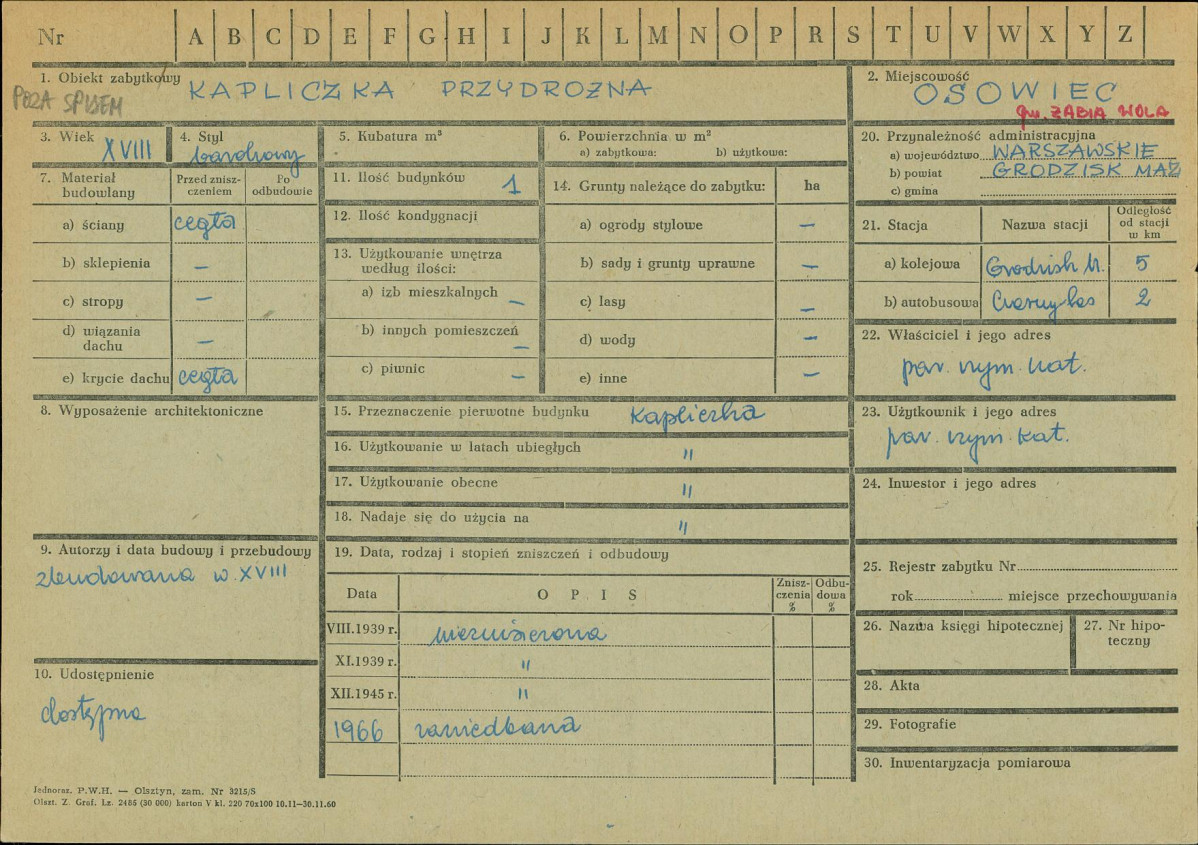 Nr A B C D E F G H I J K L M N O P R S T U V W X Y Z
1. Obiekt zabytkowy KAPLICZKA PRZYDROŻNA
POZA SPISEM
2. Miejscowość
OSOWIEC
gm. ŻABIA WOLA
3. Wiek XVIII
4. Styl
barokowy
5. Kubatura m³
6. Powierzchnia w m²
a) zabytkowa: b) użytkowa:
7. Materiał budowlany
Przed znisz-
czeniem
Po
odbudowie
a) ściany cegła
b) sklepienia –
c) stropy –
d) wiązania
dachu –
e) krycie dachu cegła
8. Wyposażenie architektoniczne
9. Autorzy i data budowy i przebudowy
zbudowana w XVIII
10. Udostępnienie
dostępna
11. Ilość budynków 1
12. Ilość kondygnacji
13. Użytkowanie wnętrza
według ilości:
a) izb mieszkalnych –
b) innych pomieszczeń –
c) piwnic –
14. Grunty należące do zabytku: ha
a) ogrody stylowe –
b) sady i grunty uprawne –
c) lasy –
d) wody –
e) inne –
15. Przeznaczenie pierwotne budynku kapliczka
16. Użytkowanie w latach ubiegłych "
17. Użytkowanie obecne "
18. Nadaje się do użycia na "
19. Data, rodzaj i stopień zniszczeń i odbudowy
Data O P I S
Znisz-
czenia
%
Odbu-
dowa
%
VIII.1939 r. niezniszczona
XI.1939 r. "
XII.1945 r. "
1966 zaniedbana
20. Przynależność administracyjna
a) województwo WARSZAWSKIE
b) powiat GRODZISK MAZ
c) gmina
21. Stacja Nazwa stacji
Odległość
od stacji
w km
a) kolejowa Grodzisk M. 5
b) autobusowa Czarny Las 2
22. Właściciel i jego adres
par. rzym. kat.
23. Użytkownik i jego adres
par. rzym. kat.
24. Inwestor i jego adres
25. Rejestr zabytku Nr
rok miejsce przechowywania
26. Nazwa księgi hipotecznej
27. Nr hipo-
teczny
28. Akta
29. Fotografie
30. Inwentaryzacja pomiarowa
Jednoraz. P.W.H. — Olsztyn, zam. Nr 3215/S
Olszt. Z. Graf. Lz. 2486 (30 000) karton V kl. 220 70x100 10.11—30.11.60